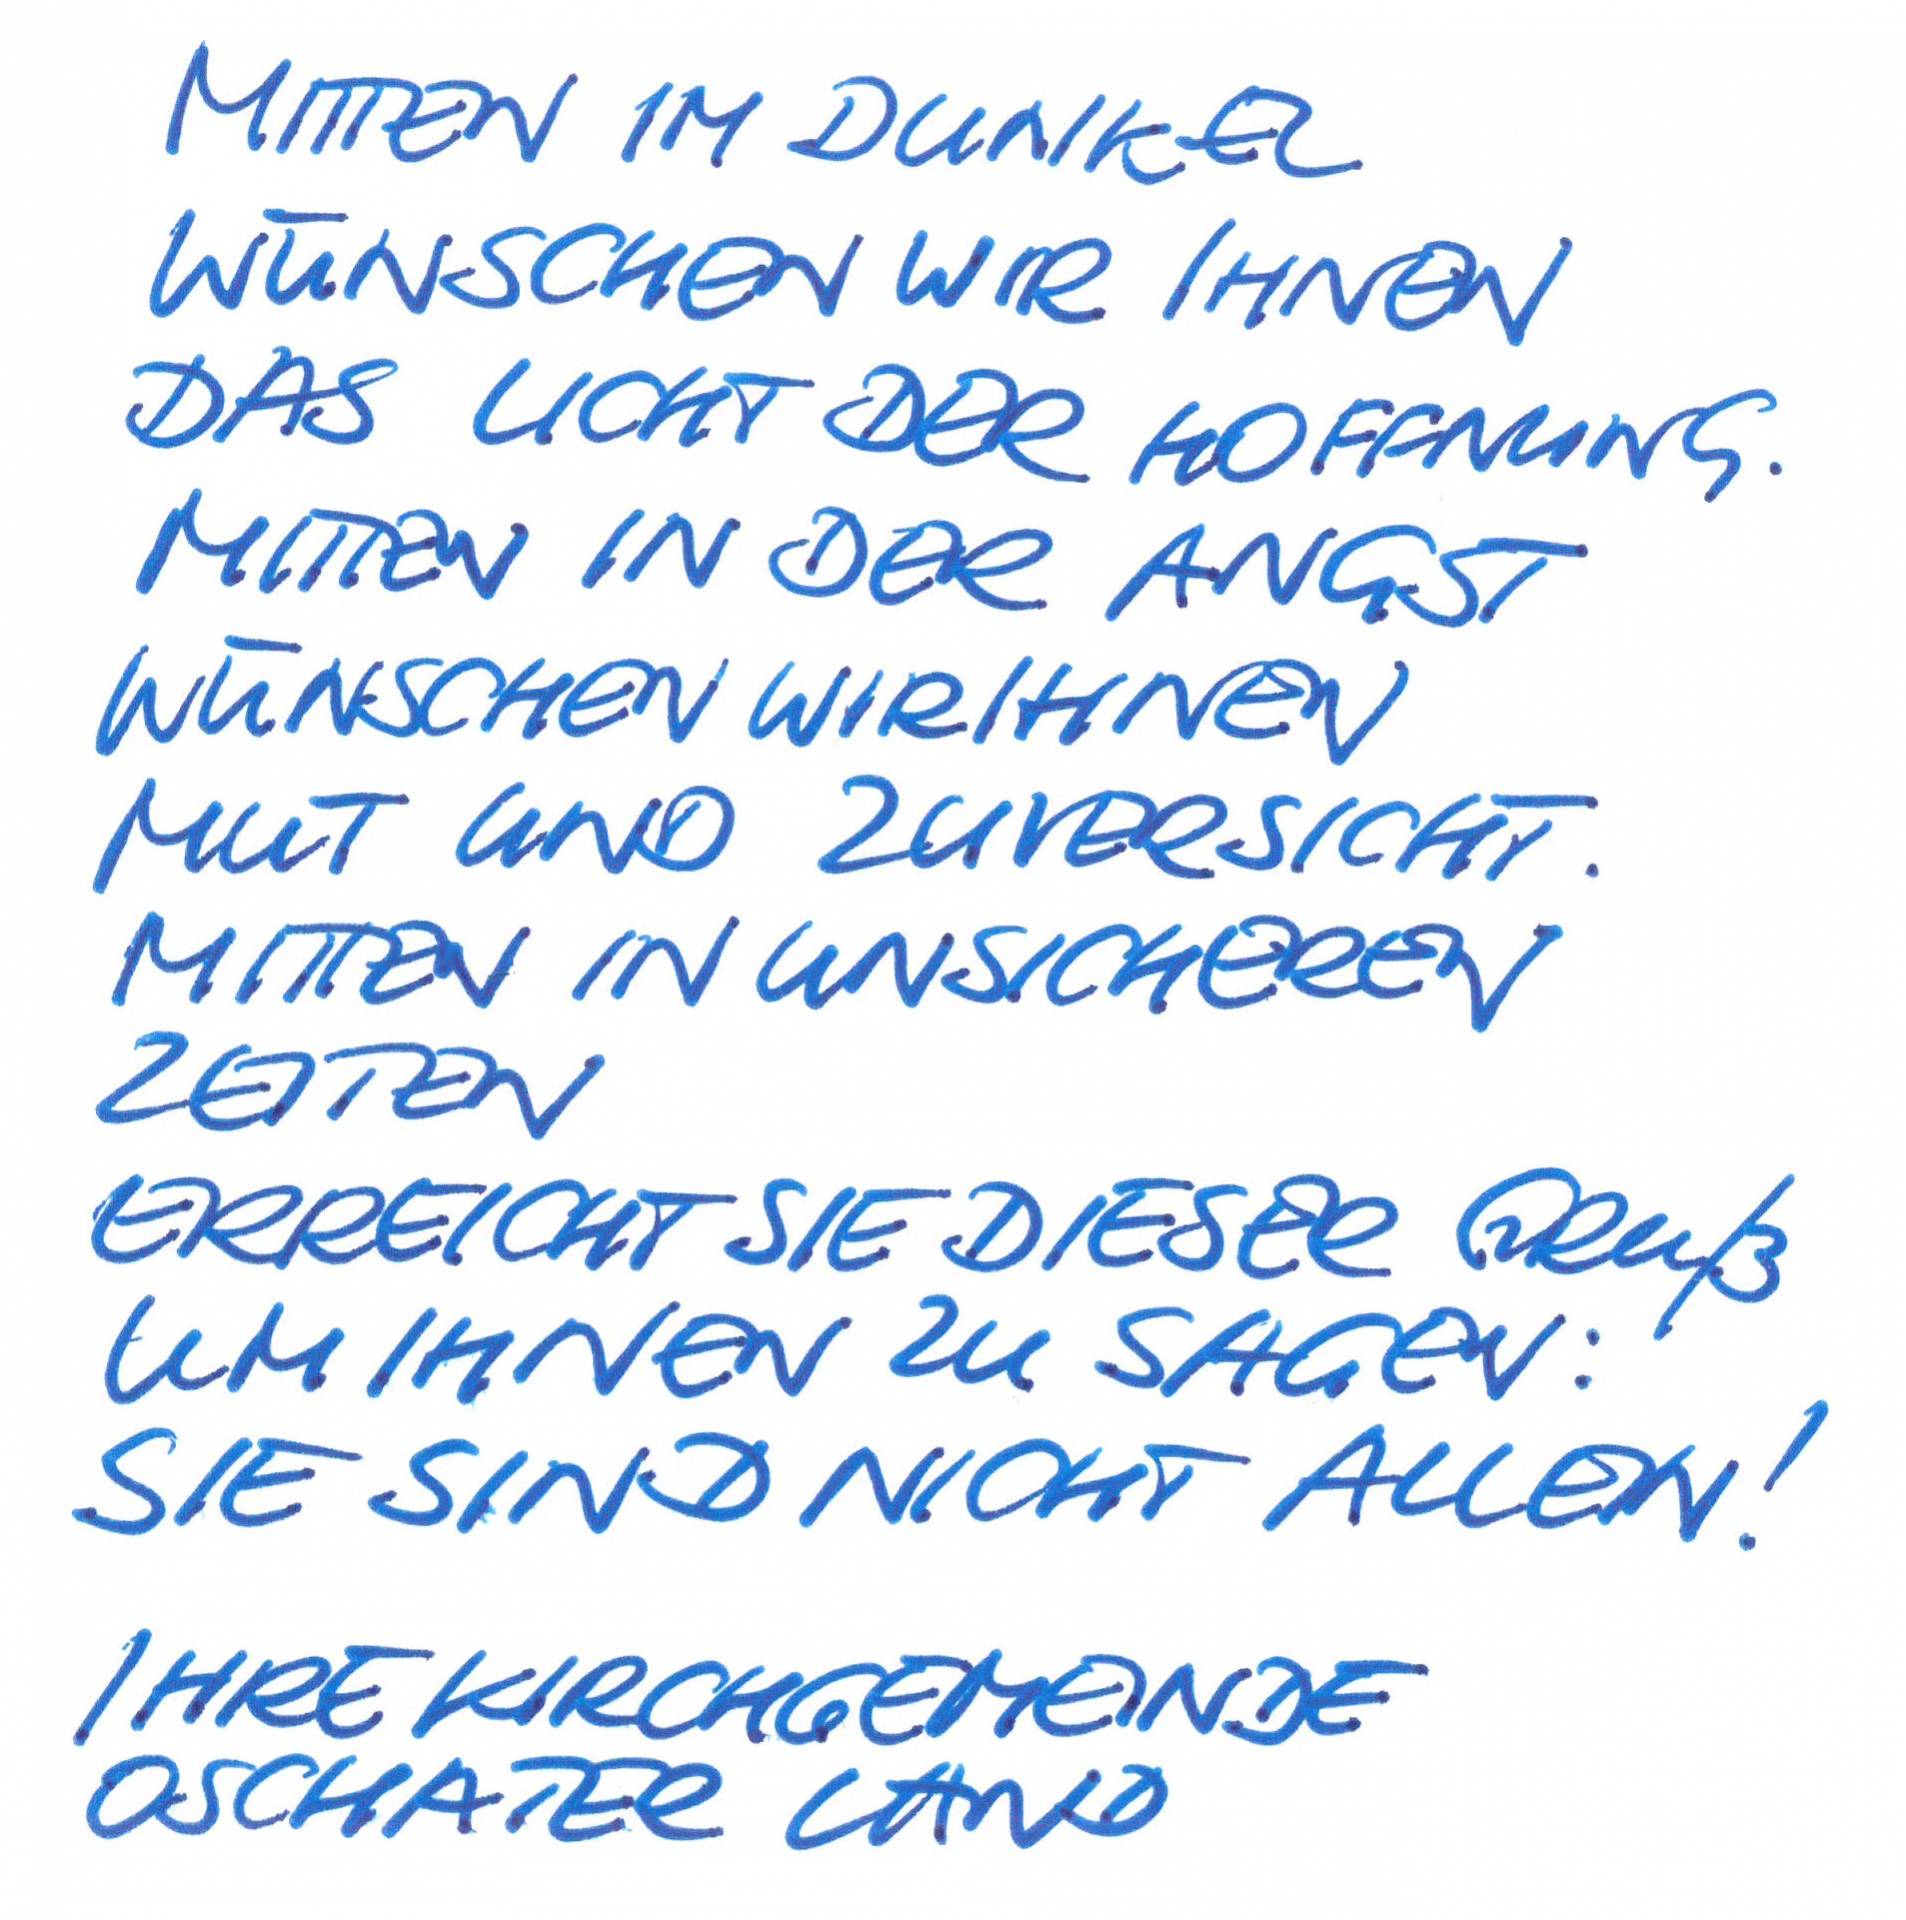 MITTEN IM DUNKEL
WÜNSCHEN WIR IHNEN
DAS LICHT DER HOFFNUNG.
MITTEN IN DER ANGST
WÜNSCHEN WIR IHNEN
MUT UND ZUVERSICHT.
MITTEN IN UNSICHEREN
ZEITEN
ERREICHT SIE DIESER GRUß
UM IHNEN ZU SAGEN:
SIE SIND NICHT ALLEIN!
IHRE KIRCHGEMEINDE
OSCHATZER LAND